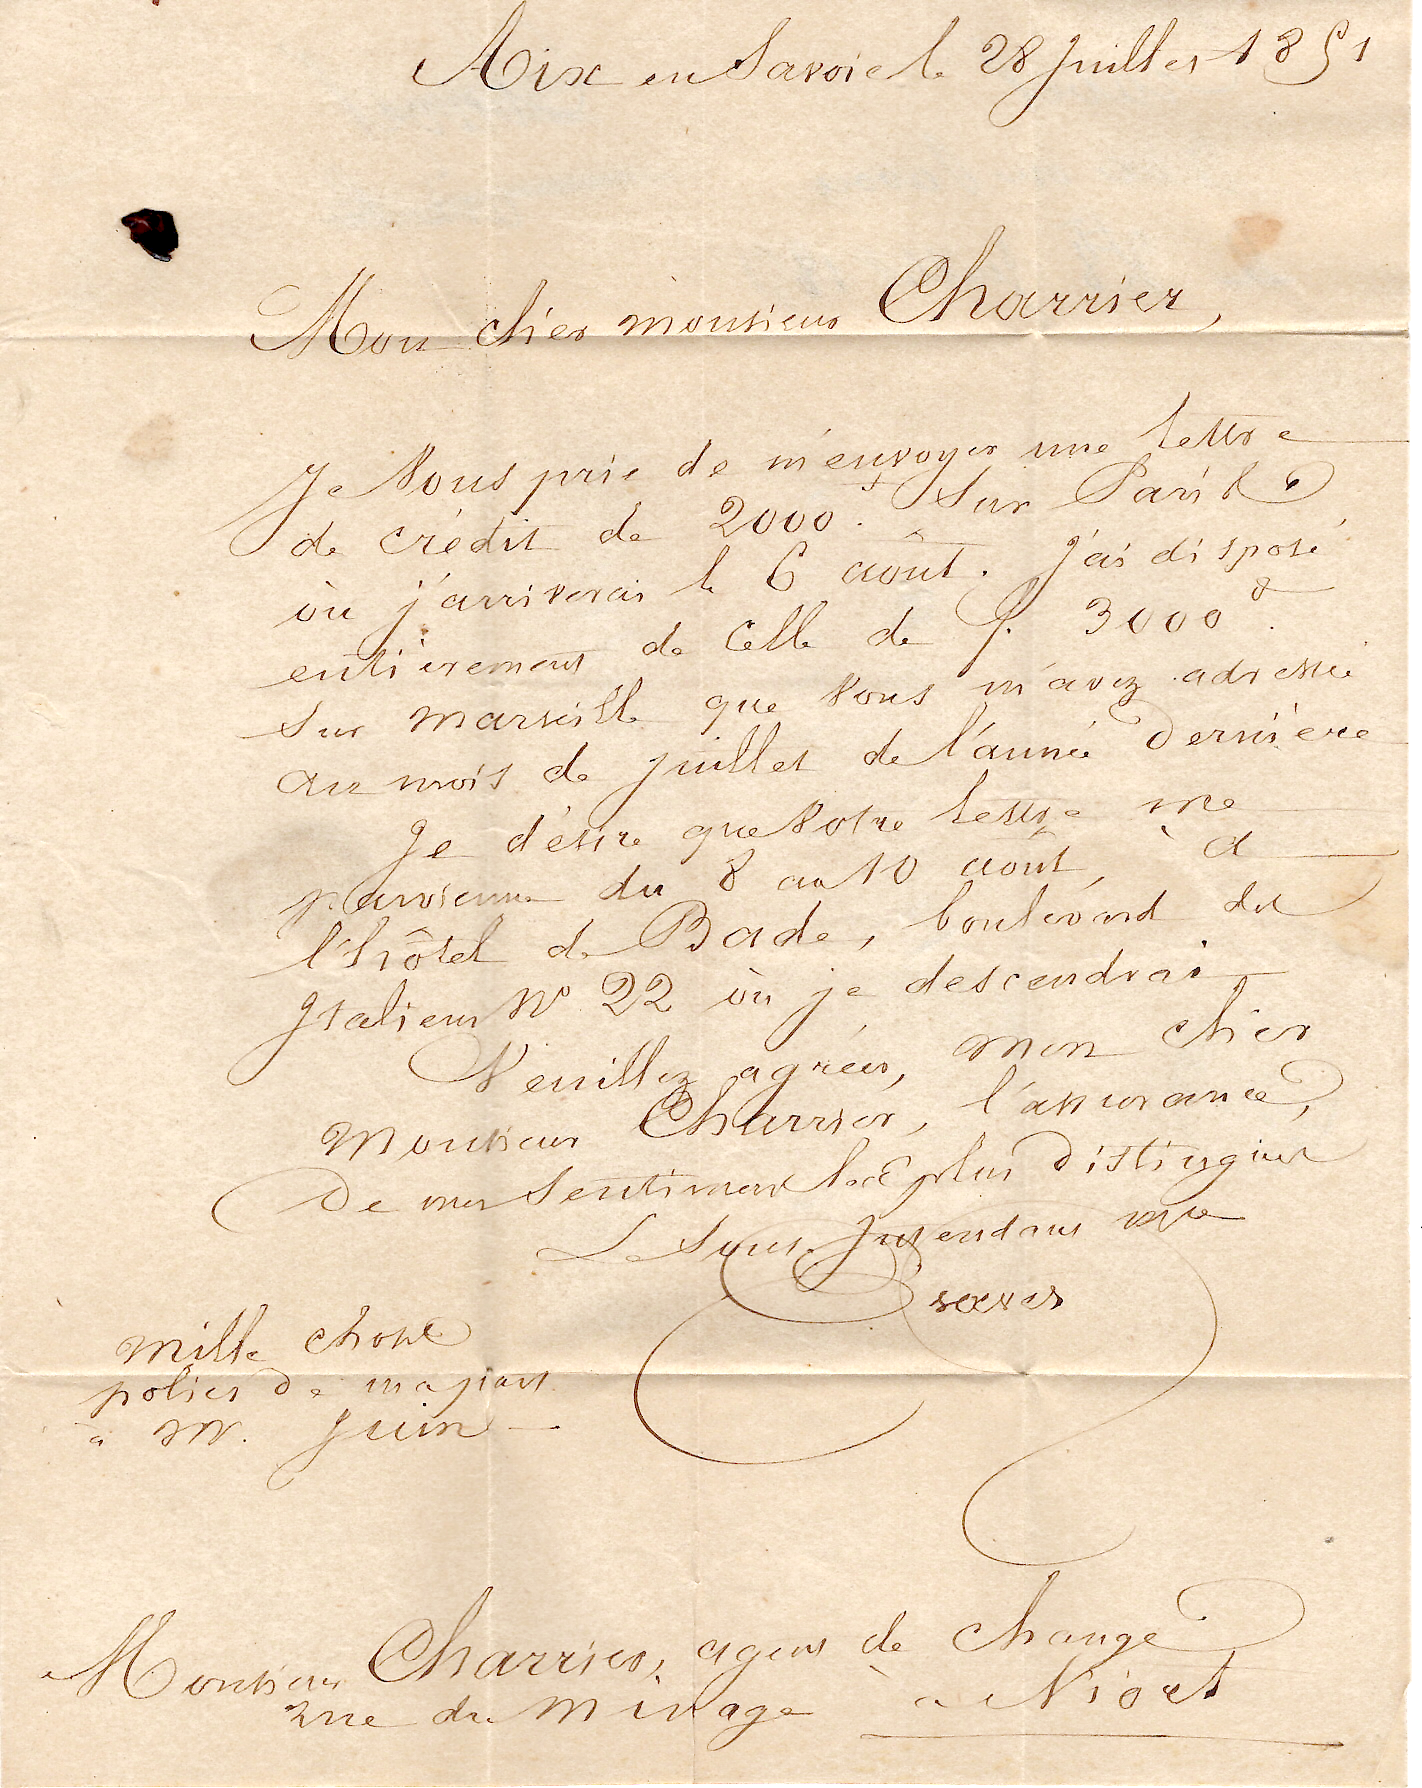 Aix en Savoie le 28 Juillet 1851
Mon cher monsieur Charrier,
Je vous prie de m'envoyer une lettre
de crédit de 2000 f. sur Paris
où j'arriverai le 6 août. J'ai disposé
entièrement de celle de f. 3000
sur Marseille que vous m'avez adressée
au mois de juillet de l'année dernière
Je désire que votre lettre me
parvienne du 8 au 10 août, à
l'hôtel de Bade, boulevard des
Italiens No 22 où je descendrai
Veuillez agréer, mon cher
Monsieur Charrier, l'assurance,
de mes sentimens les plus distingués
Le Sous Intendant mre
mille choses
polies de ma part
à M. Juin
Monsieur Charrier, agent de change
rue du Minage à Niort